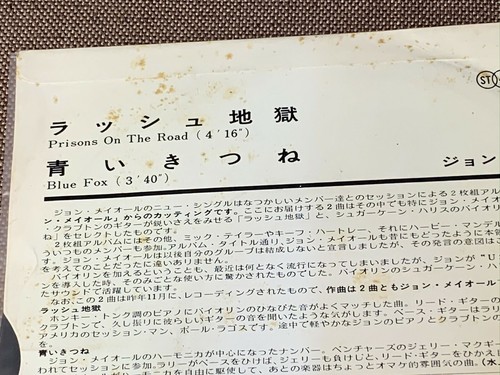 ST
ラッシュ地獄
Prisons On The Road (4′16″)
青いきつね
Blue Fox (3′40″)
ジョン
ジョン・メイオールのニュー・シングルはなつかしいメンバー達とのセッションによる2枚組アル
ン・メイオール」からのカッティングです。ここにお届けする2曲はその中でも特にジョン・メイオ
・クラプトンのギターが鋭いさえをみせる「ラッシュ地獄」と、シュガーケーン・ハリスのバイオリ
ね」をセレクトしたものです。
2枚組アルバムにはその他、ミック・テイラーやキーフ・ハートレー、それにハービー・マンデル
ういうつものメンバーも参加。アルバム・タイトル通り、ジョン・メイオールも昔にもどったように本
ます。ジョン・メイオールは以後自分のグループは結成しないと宣言しましたが、その発言の意図は
を考えてのことだったに違いありません。
バイオリンを加えるということも、最近は何となく流行になってしまいましたが、ジョンが“U
ンを導入した時、そのみごとな使い方に驚かされたものでした。バイオリンのシュガーケーン・ハ
たサウンドで活躍しています。
なお、この2曲は昨年11月に、レコーディングされたもので、作曲は2曲ともジョン・メイオール
ラッシュ地獄
ホンキートンク調のピアノにバイオリンのひなびた音がよくマッチした曲。リード・ギターの
クラプトンで、久し振りに彼らしいギターの音を聞いたような気がします。ベース・ギターはラリ
アメリカのセッション・マン、ポール・ラゴスです。途中で軽やかなジョンのピアノとクラプトンの
す。
青いきつね
ジョン・メイオールのハーモニカが中心になったナンバー。ベンチャーズのジェリー・マクギ
われてセッションに参加。ラリーがベースをひけば、ジェリーも負けじと、リード・ギターをひかえ
ールがハーモニカを自由に駆使して、あとの楽器はちょっとオマケ的雰囲気の曲です。(水